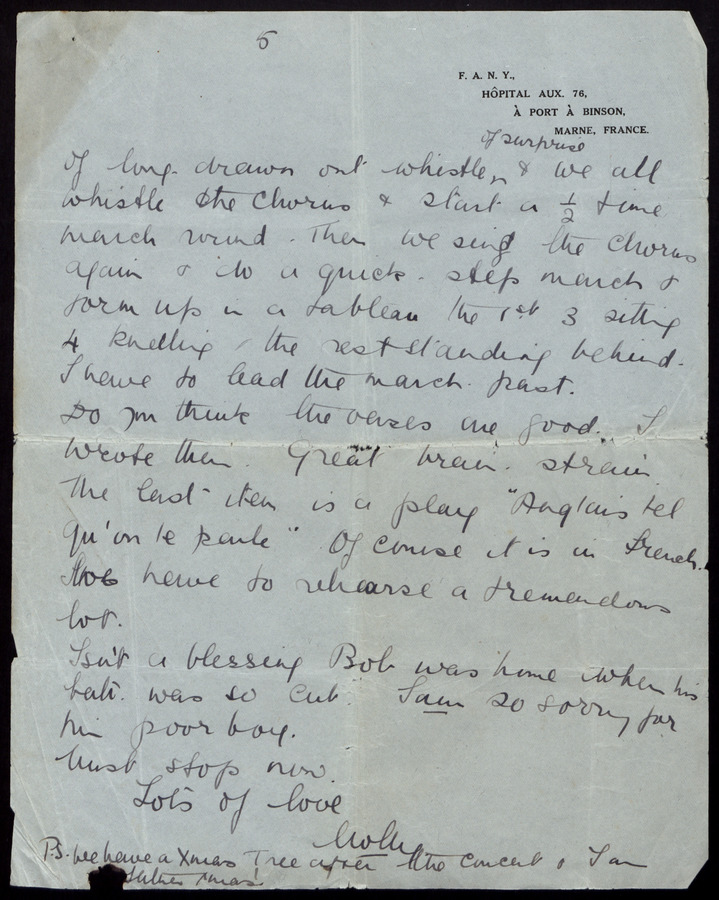 5
F. A. N. Y.,
HÔPITAL AUX. 76,
À PORT À BINSON,
MARNE, FRANCE.
of surprise
of long-drawn out whistles, & we all
whistle the Chorus & start a 1/2 time
march round. Then we sing the Chorus
again & do a quick-step march &
form up in a tableau the 1st 3 sitting
4 knelling, the rest standing behind.
I have to lead the march past.
Do you think the verses are good. I
wrote them. Great brain-strain.
The last item is a play "Anglais tel
qu'on le parle" Of course it is in French.
have to rehearse a tremendous
lot.
Isn't a blessing Bob was home when his
batt. was so cut. I am so sorry for
him poor boy.
Must stop now.
Lots of love
Molly
P.S. We have a Xmas Tree after the concert & I am
Father Xmas!